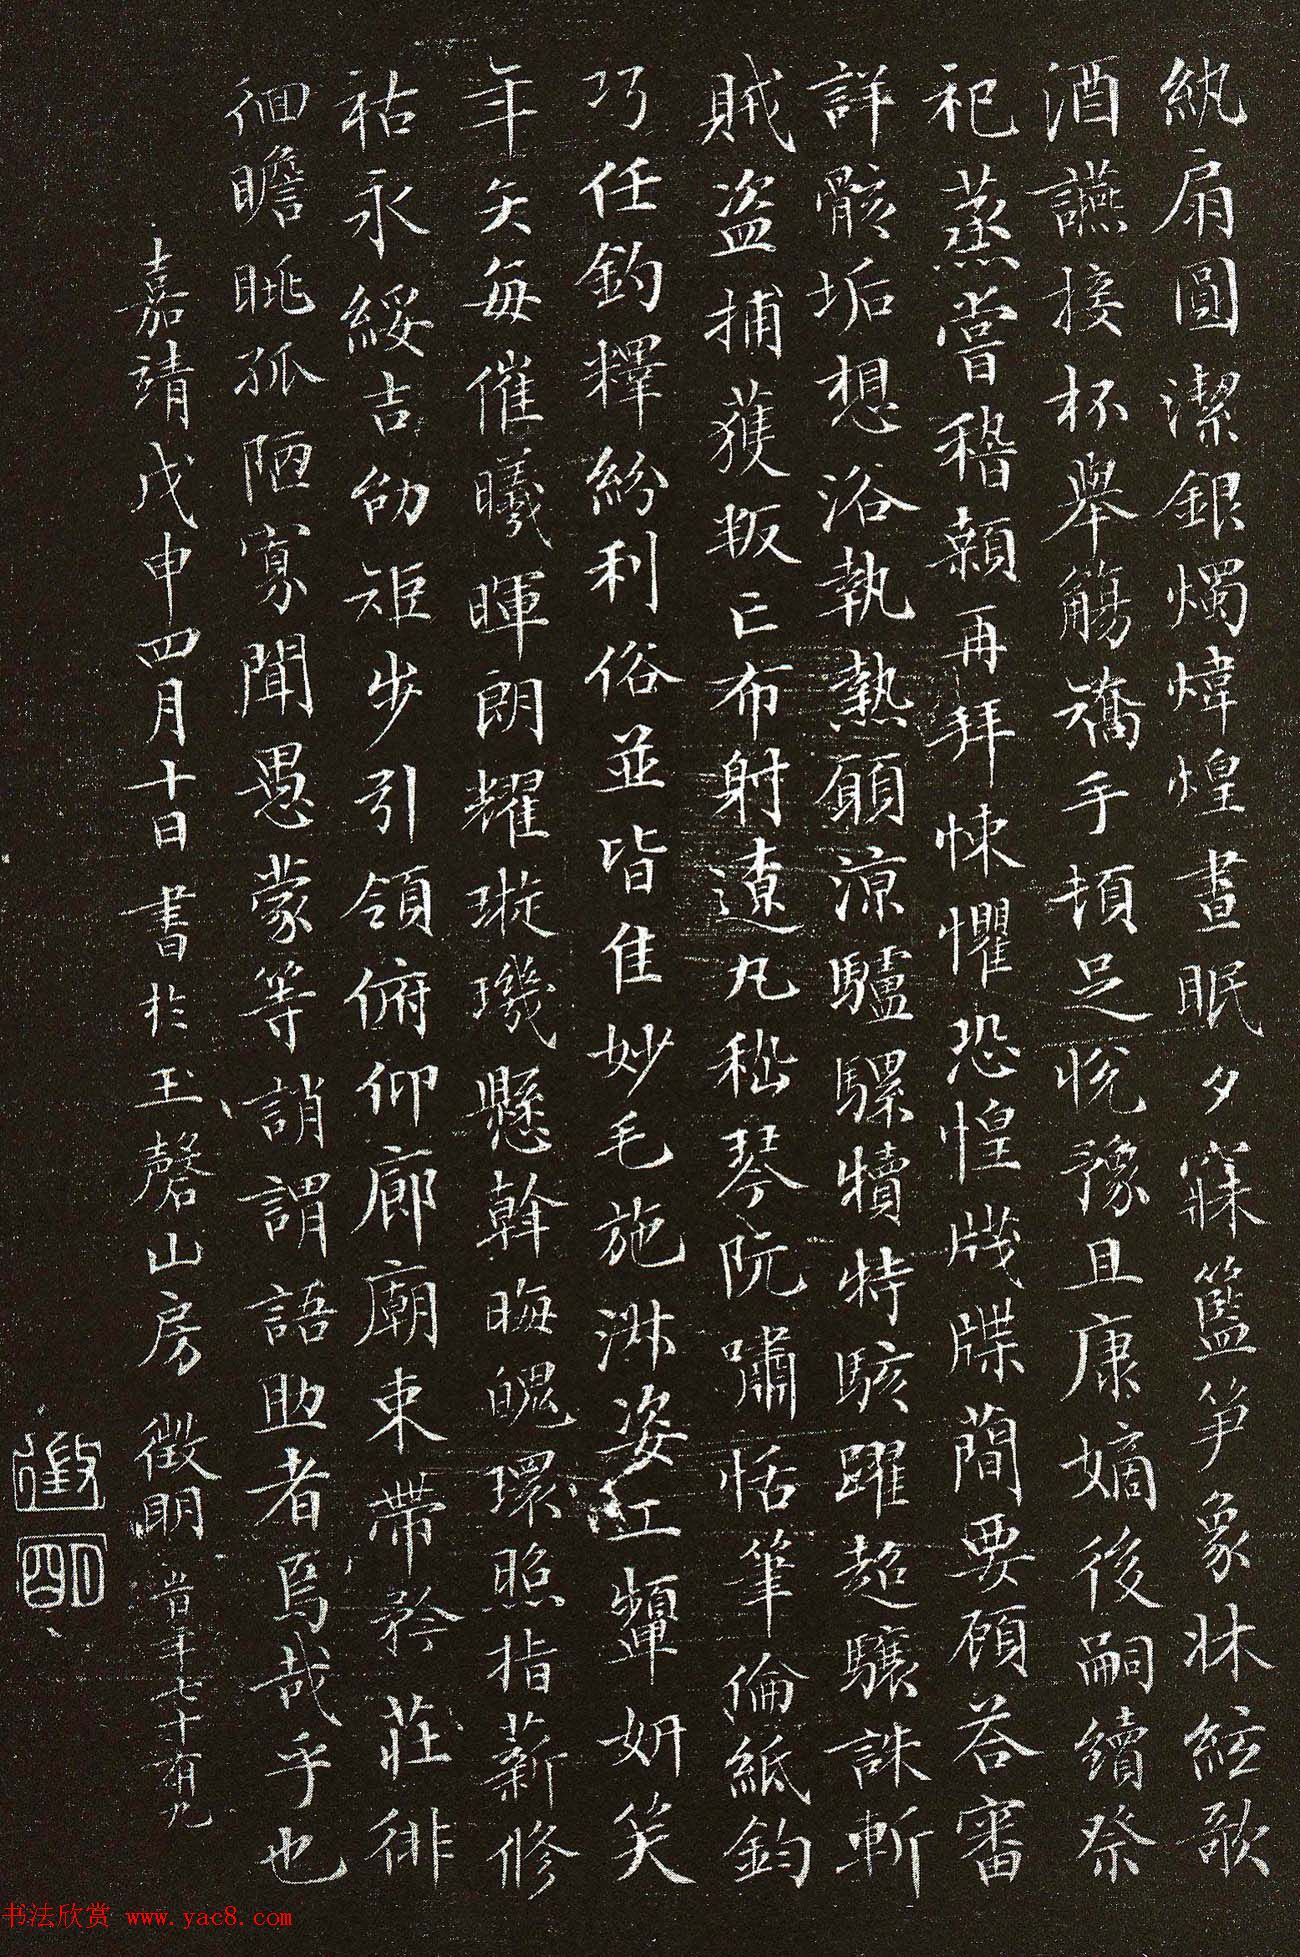 紈扇圓潔銀燭煒煌晝眠夕寐籃笋象牀絃歌
酒讌接杯舉觴矯手頓足悅豫且康嫡後嗣續祭
祀蒸嘗稽顙再拜悚懼恐惶牋牒簡要顧荅審
詳骸垢想浴執熱願涼驢騾犢特駭躍超驤誅斬
賊盜捕獲叛亡布射遼丸嵇琴阮嘯恬筆倫紙鈞
巧任釣釋紛利俗並皆佳妙毛施淑姿工顰妍笑
年矢每催曦暉朗耀璇璣懸斡晦魄環照指薪修
祜永綏吉劭矩步引領俯仰廊廟束帶矜莊徘
徊瞻眺孤陋寡聞愚蒙等誚謂語助者焉哉乎也
嘉靖戊申四月十日書於玉磬山房 徵明 昔年七十有九
徵
明
书法欣赏 www.yac8.com